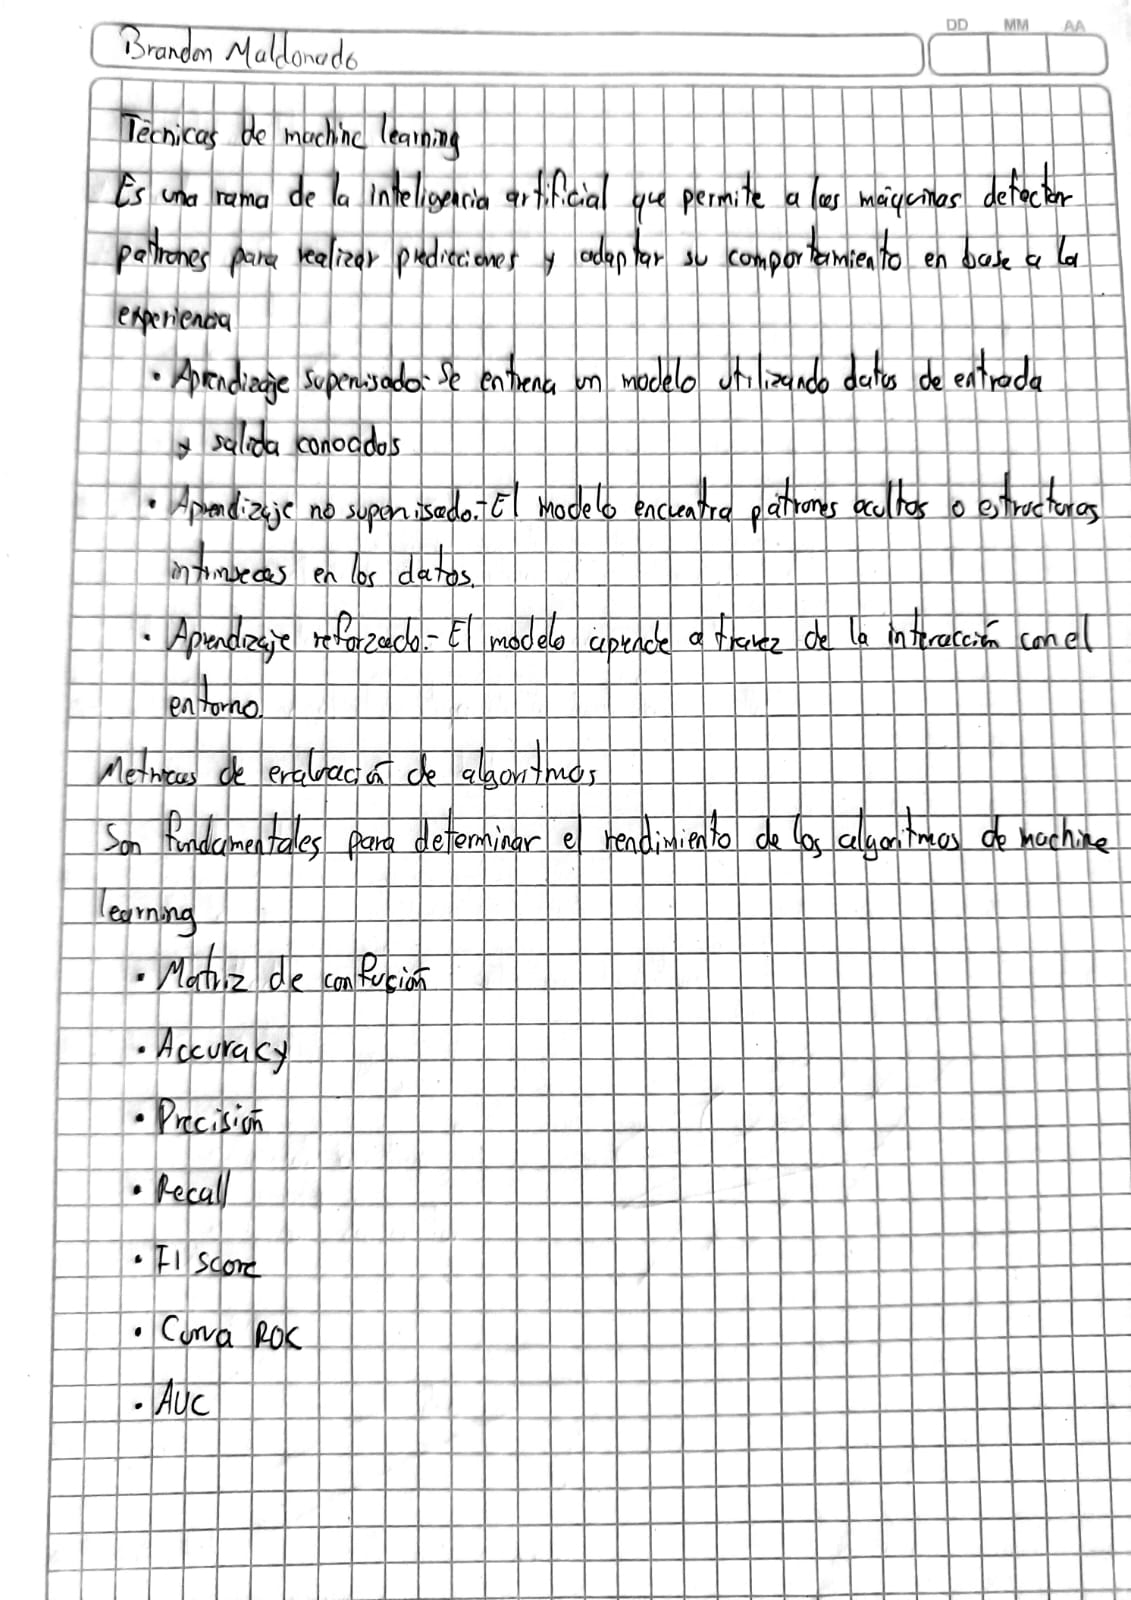 DD MM AA
Brandon Maldonado
Técnicas de machine learning
Es una rama de la inteligencia artificial que permite a las máquinas detectar
patrones para realizar predicciones y adaptar su comportamiento en base a la
experiencia
• Aprendizaje supervisado: Se entrena un modelo utilizando datos de entrada
y salida conocidos
• Aprendizaje no supervisado.- El modelo encuentra patrones ocultos o estructuras
intrinsecas en los datos.
• Aprendizaje reforzado.- El modelo aprende a travez de la interacción con el
entorno.
Metricas de evaluación de algoritmos
Son fundamentales para determinar el rendimiento de los algoritmos de machine
learning
• Matriz de confución
• Accuracy
• Precisión
• Recall
• F1 score
• Curva ROC
• AUC